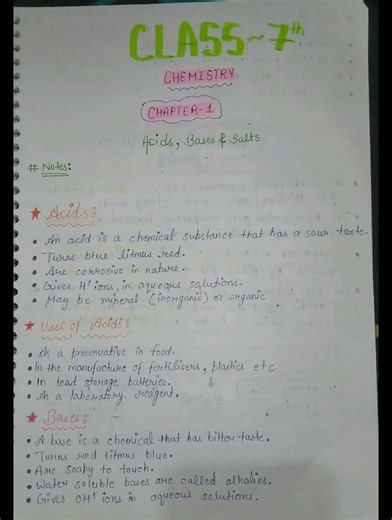 CLASS~7th
CHEMISTRY
CHAPTER-1
Acids, Bases & Salts
# Notes:
★ Acids:
• An acid is a chemical substance that has a sour taste.
• Turns blue litmus red.
• Are corrosive in nature.
• Gives H⁺ ions, in aqueous solutions.
• May be mineral (inorganic) or organic
★ Uses of Acids:
• As a preservative in food.
• In the manufacture of fertilisers, plastics etc
• In lead storage batteries.
• As a laboratory reagent.
★ Bases:
• A base is a chemical that has bitter taste.
• Turns red litmus blue.
• Are soapy to touch.
• Water soluble bases are called alkalies.
• Gives OH⁺ ions in aqueous solutions.